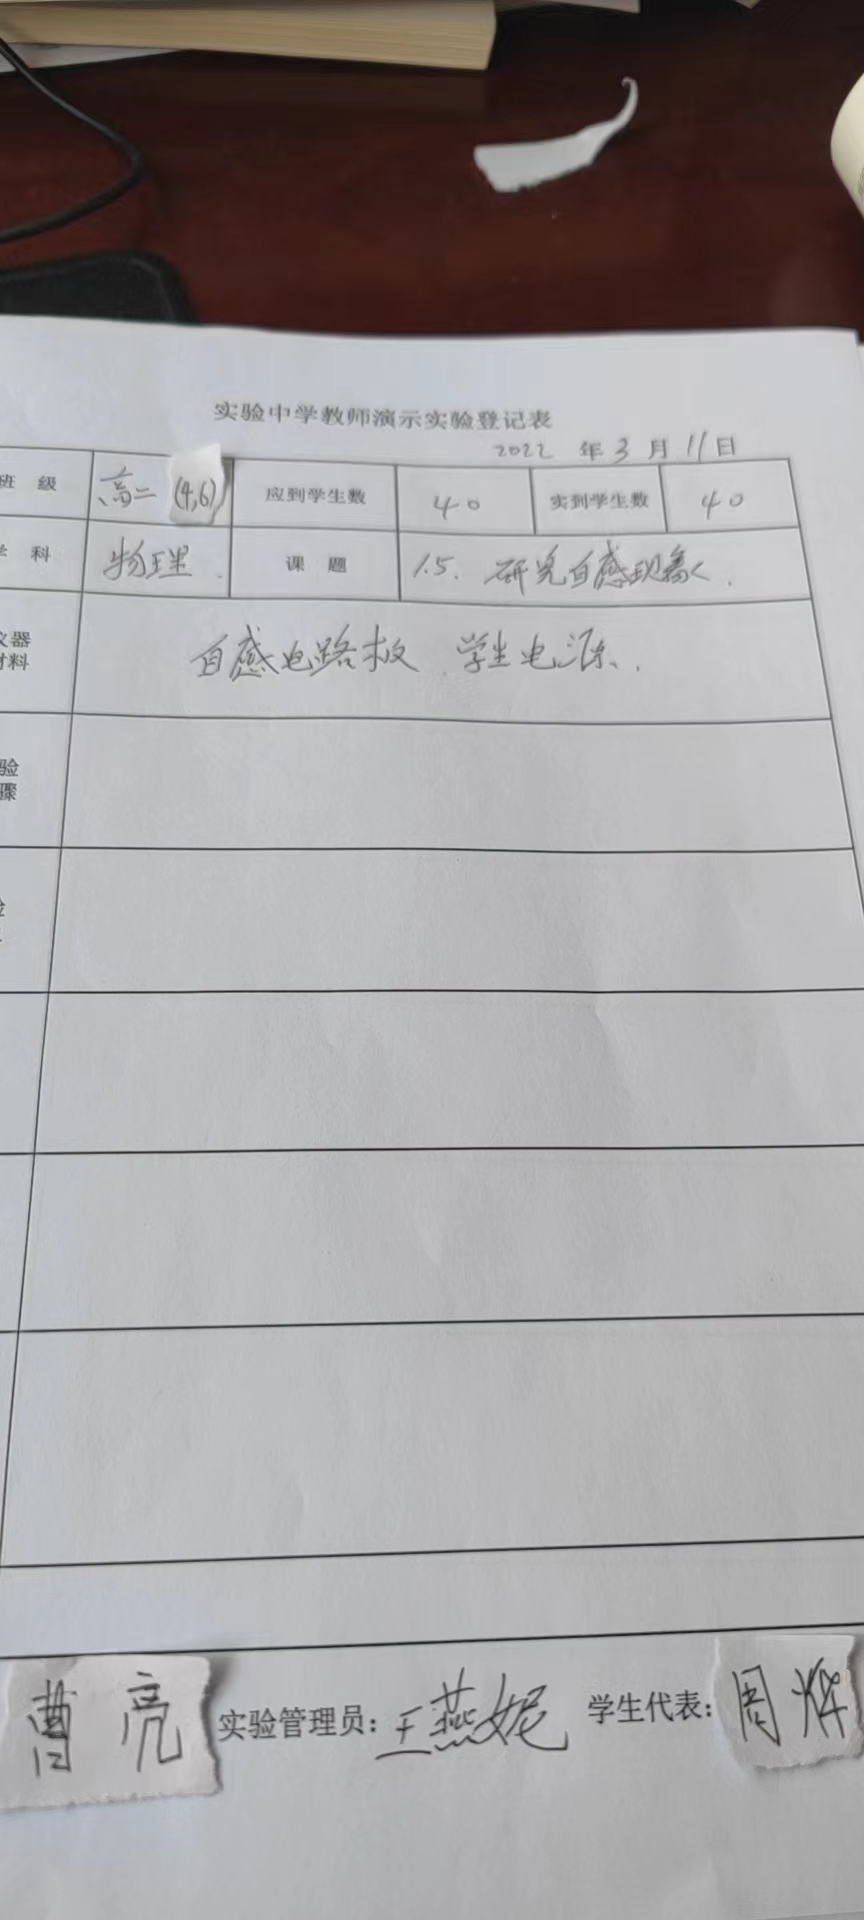 实验中学教师演示实验登记表
2022 年 3 月 11 日
班 级 高二 (4,6) 应到学生数 40 实到学生数 40
科 物理. 课 题 1.5. 研究自感现象.
仪器 自感电路板 学生电源.
材料
验
骤
曹亮 实验管理员: 王燕妮 学生代表: 周烨